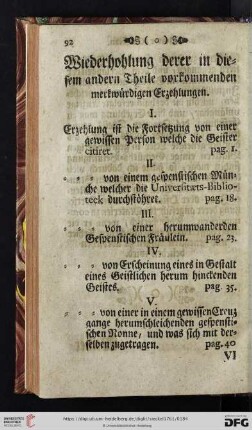 92 ( o )
Wiederhohlung derer in die-
sem andern Theile vorkommenden
merkwürdigen Erzehlungen.
I.
Erzehlung ist die Fortsetzung von einer
gewissen Person welche die Geister
citiret. pag. 1.
II
- - - von einem gespenstischen Mün-
che welcher die Universitæts-Biblio-
teck durchstöhret. pag. 18.
III.
- - - von einer herumwanderden
Gespenstischen Fräulein. pag. 23.
IV.
- - - von Erscheinung eines in Gestalt
eines Geistlichen herum hinckenden
Geistes. pag. 35.
V.
- - - von einer in einem gewissen Creuz
gange herumschleichenden gespensti-
schen Nonne, und was sich mit der-
selben zugetragen. pag. 40
VI